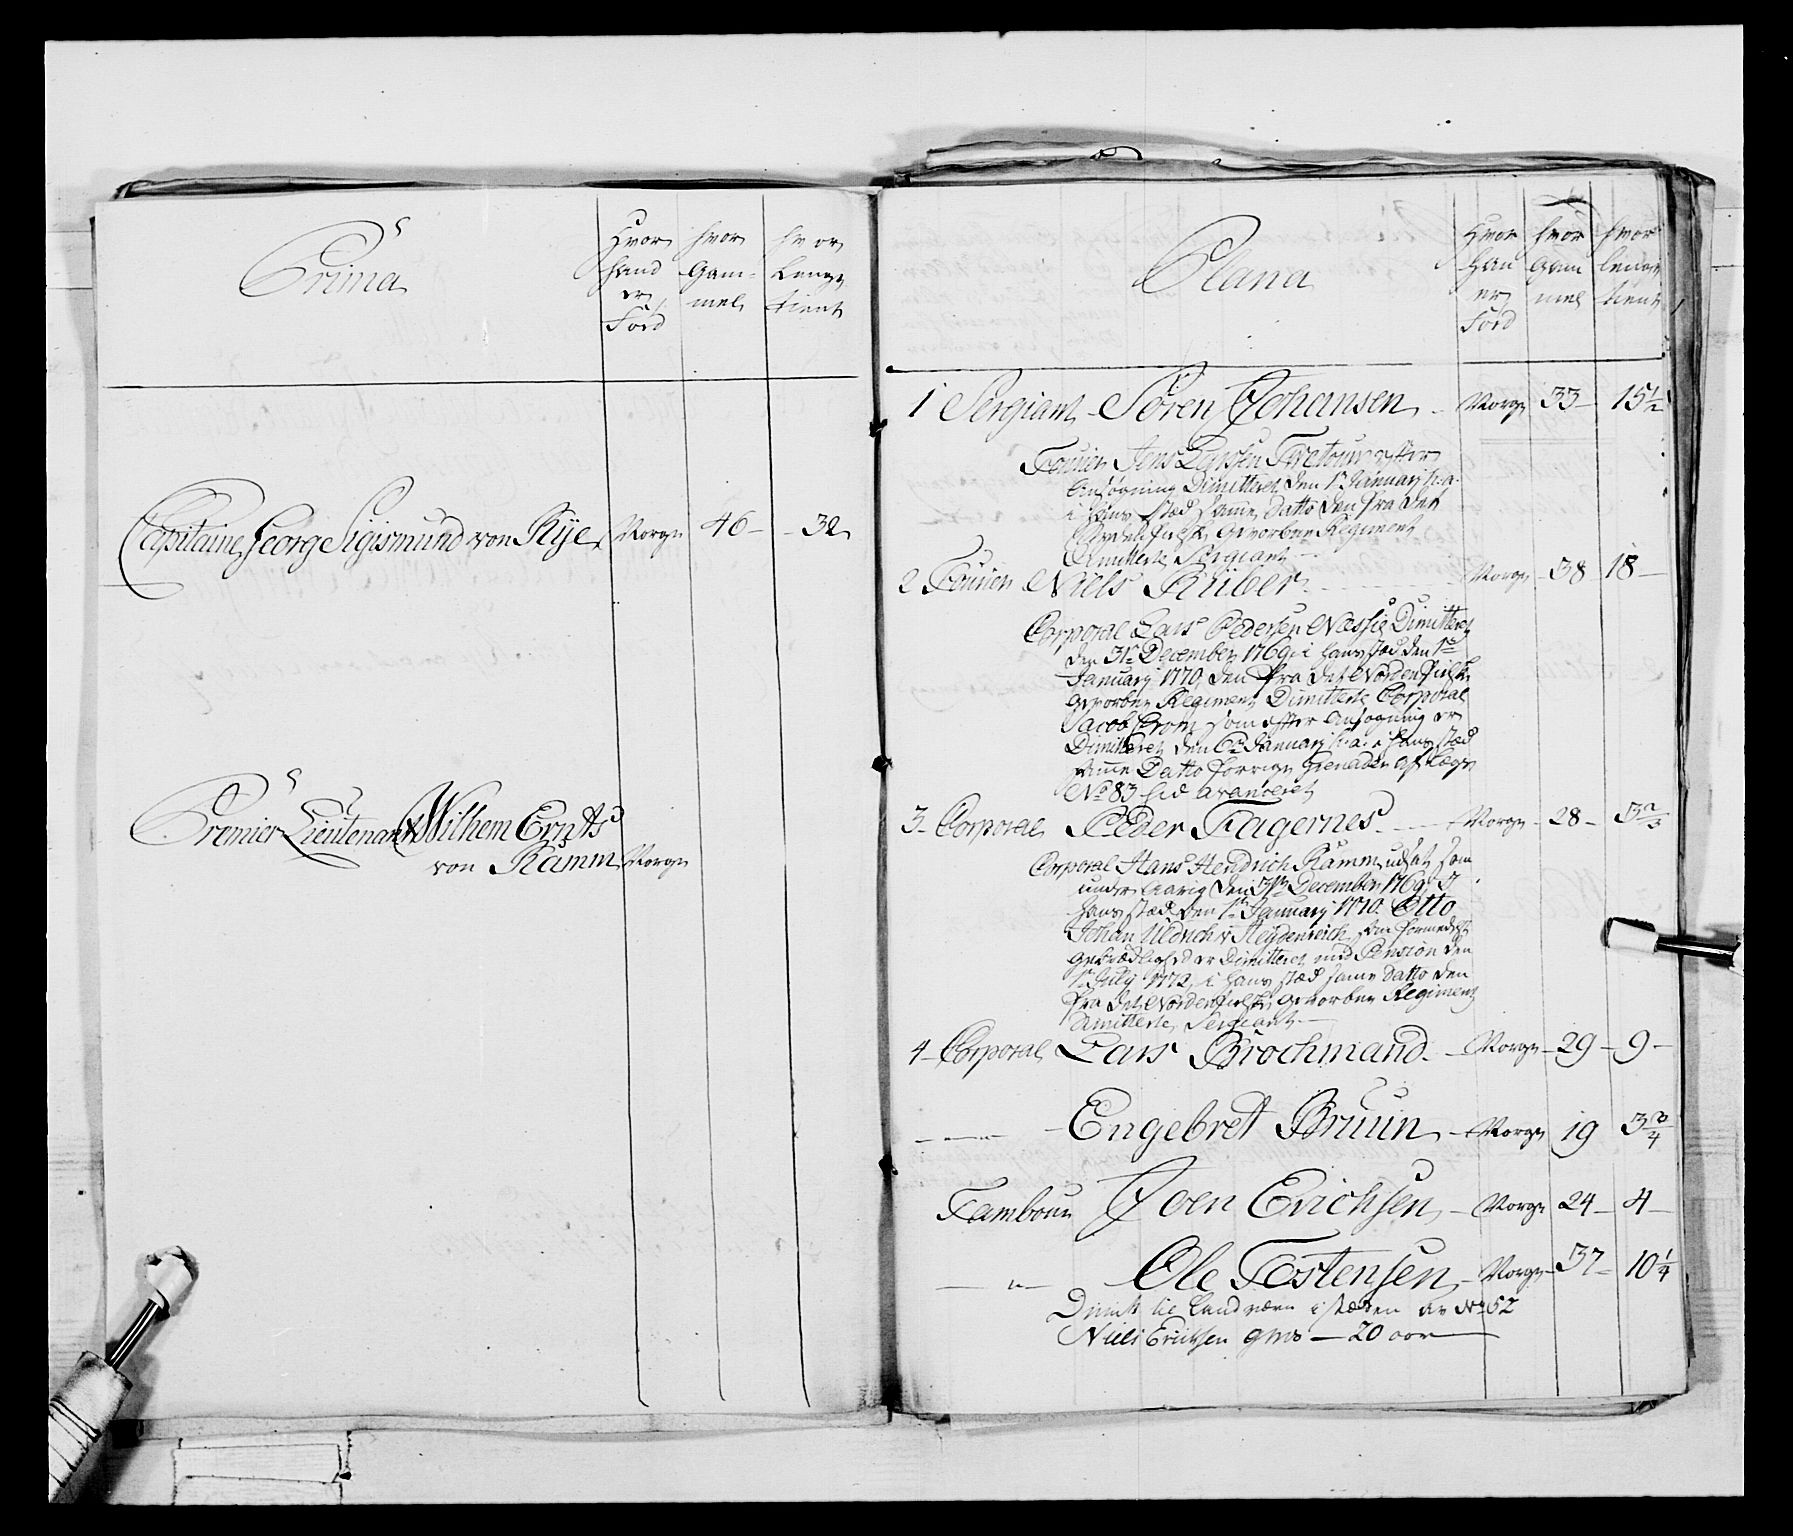 Prima
Hvor hand er Føed
hvor Gam- mel
hvor Lenge tient
Capitaine Georg Sigismund von Rÿe Norge 46 - 32
Premier Lieutenant Wilhem Ernsts
von Kamm Norge
Plana
Hvor han er Føed
hvor gam mel
hvor lenge tient
1 Sergiant Søren Johansen - Norge 33 - 15 1/2
Fourier Jens Larsen efter
Ansøgning Dimitteret den 1e Januarj h. a.
i hans stæd samme Datto den fra det
Nordenfieldske gevorbne Regiment
Dimitterte Sergeant
2 Fourier Niels Kuber - Norge 38 18 -
Corporal Lars Pedersen Næssie Dimitteret
den 31e December 1769, i hans stæd den 1te
Januarj 1770, den fra det Nordenfieldske
gevorbne Regiment Dimitterte Corporal
Jacob Brom, som efter Ansøgning er
Dimitteret den 6te Januarj h. a. i hans stæd
samme Datto forrige Grenader af Lægd
No 83 hid avanceret
3 - Corporal Peder Fagernes - Norge - 28 - 3 2/3
Corporal Hans Hendrich Kamm, udsat som
under Aarig den 31te December 1769, I
hans stæd den 1te Januarj 1770. Otto
Johan Uldrich v: Heydenreich, som formedelst
er Dimitteret med Pension den
1te July 1772, i hans stæd samme Datto den
fra det Nordenfieldske gevorbne Regiment
dimitterte Sergeant -
4 - Corporal Lars Brochmand - Norge - 29 - 9 -
- - - - Engebret Bruun - Norge 19 3 3/4
Tambour Iven Erichsen - Norge 24 - 4 -
- " - Ole Tostensen - Norge - 37 - 10 1/4
Dimit: til Land værn i stæden av No 52
Niels Erichsen - 20 aar -